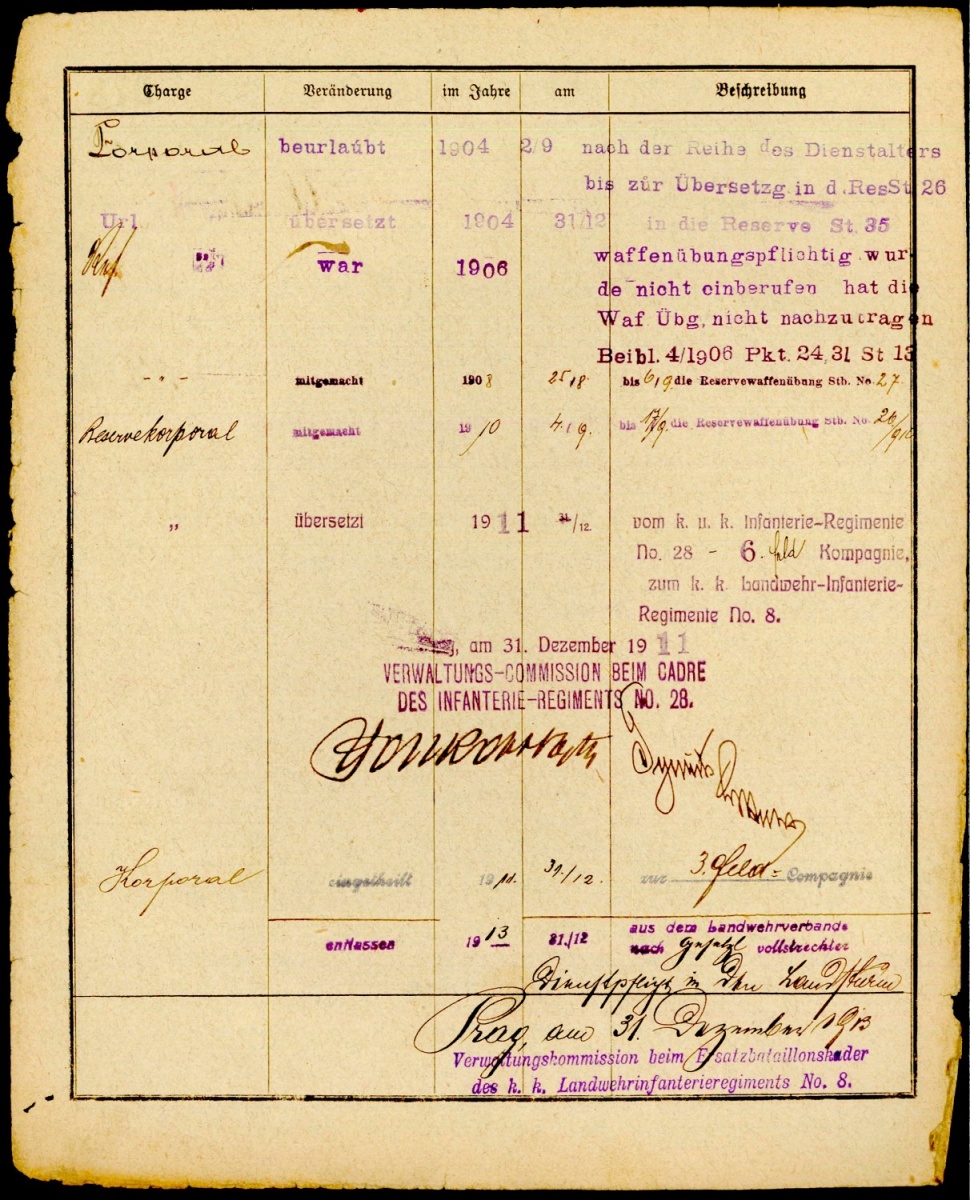 Charge Veränderung im Jahre am Beschreibung
Corporal beurlaubt 1904 2/9 nach der Reihe des Dienstalters
bis zur Übersetzg in d. ResSt 26
Url übersetzt 1904 31/12 in die Reserve St. 35
war 1906 waffenübungspflichtig wur-
de nicht einberufen hat die
Waf Übg, nicht nachzutragen
Beibl. 4/1906 Pkt. 24,31 St 13
-„- mitgemacht 1908 25/8. bis 6/9 die Reservewaffenübung Stb. No. 27.
Reservekorporal mitgemacht 1910 4./9. bis 17/9. die Reservewaffenübung Stb. No. 26/910
„ übersetzt 1911 31/12. vom k. u. k. Infanterie-Regimente
No. 28 - 6. Feld Kompagnie,
zum k. k. Landwehr-Infanterie-
Regimente No. 8.
am 31. Dezember 1911
VERWALTUNGS-COMMISSION BEIM CADRE
DES INFANTERIE-REGIMENTS NO. 28.
Korporal eingetheilt 1911. 31./12. zur 3. Feld- Compagnie
entlassen 1913 31./12 aus dem Landwehrverbande
nach gesetzl vollstreckter
Dienstpflicht in den Landsturm
Prag, am 31. Dezember 1913
Verwaltungskommission beim Ersatzbataillonskader
des k. k. Landwehrinfanterieregiments No. 8.